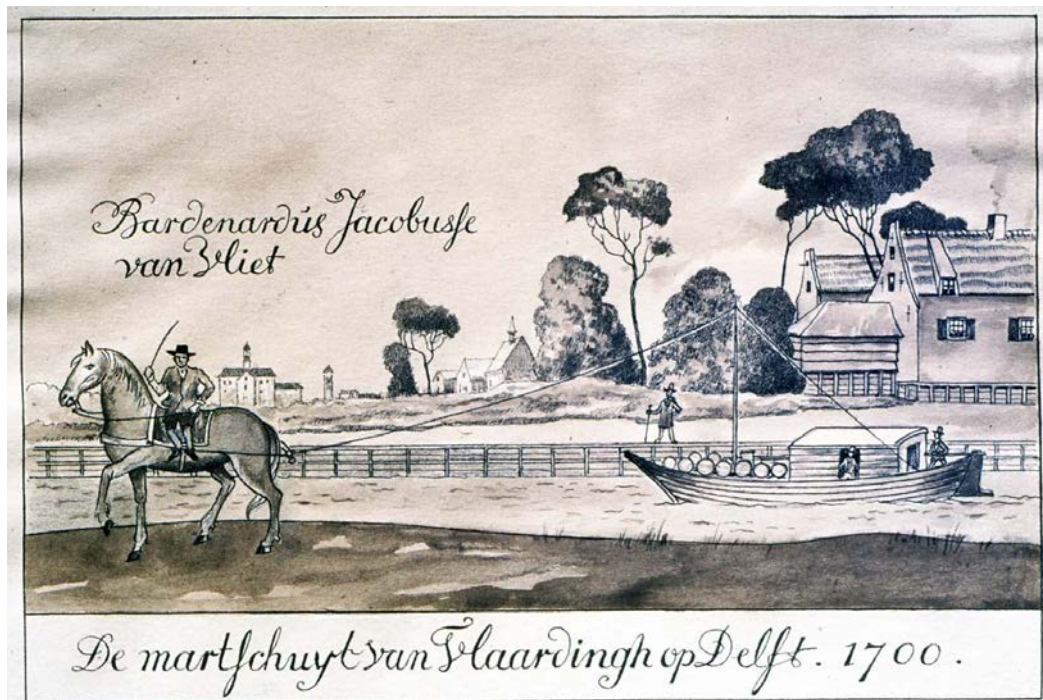 Bardenardús Jacobusse
van Vliet
De martschuyt van Vlaardingh op Delft. 1700.